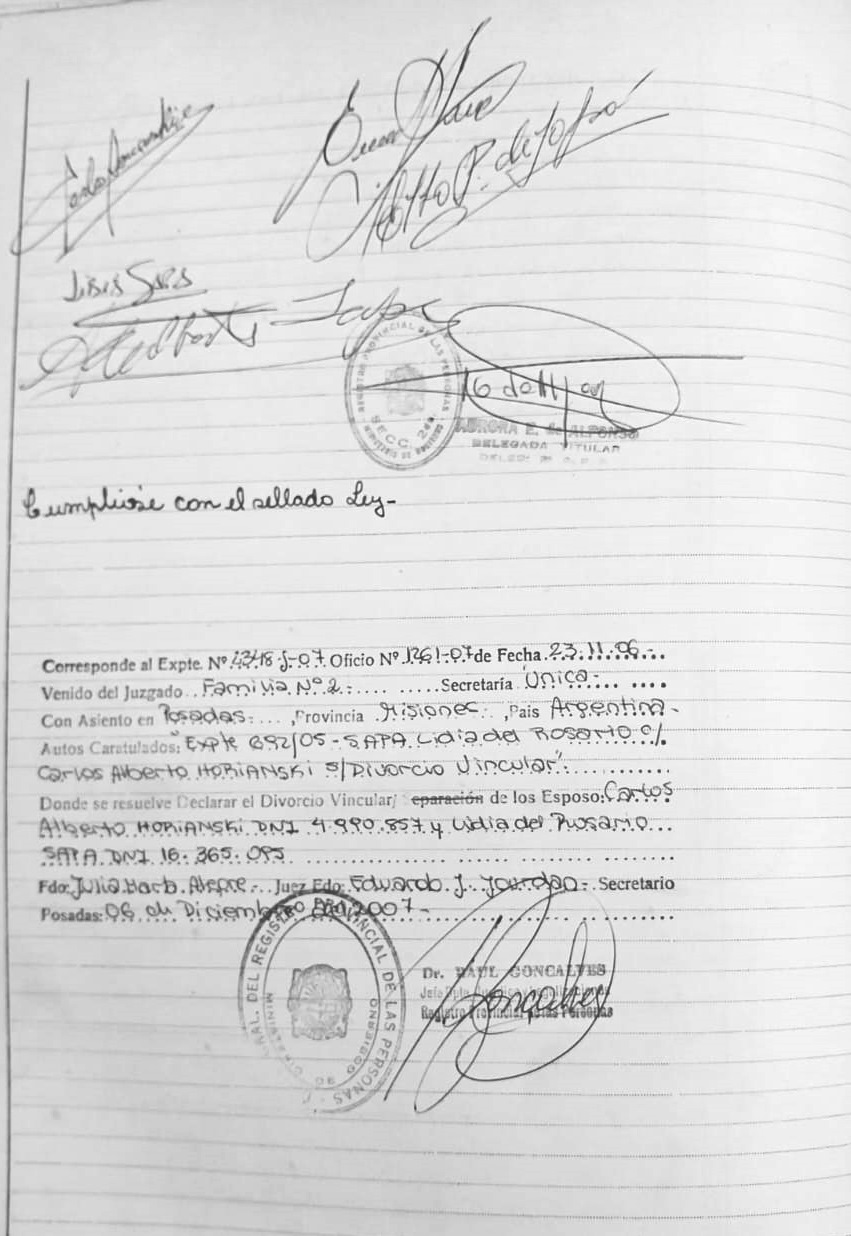 REGISTRO PROVINCIAL DE LAS PERSONAS
SECC. 2da.
AURORA E. de ALFONSO
DELEGADA TITULAR
Cumplióse con el sellado Ley-
Corresponde al Expte. Nº 4348-J-07 Oficio Nº 1261-07 de Fecha 23.11.06
Venido del Juzgado Familia Nº 2 Secretaría Única
Con Asiento en Posadas, Provincia Misiones, País Argentina-
Autos Caratulados: "Expte 692/05 - SAPA Lidia del Rosario c/
Carlos Alberto HORIANSKI s/Divorcio Vincular"
Donde se resuelve Declarar el Divorcio Vincular/ eparación de los Esposo: Carlos
Alberto HORIANSKI DNI 4.990.857 y Lidia del Rosario
SAPA DNI 16.365.095
Fdo: Julia Harb. Alegre Juez Fdo: Eduardo J. Jourdan- Secretario
Posadas: 06 de Diciembre 2007-
DEL REGISTRO PROVINCIAL DE LAS PERSONAS
Dr. RAUL GONCALVES
Registro Provincial de las Personas